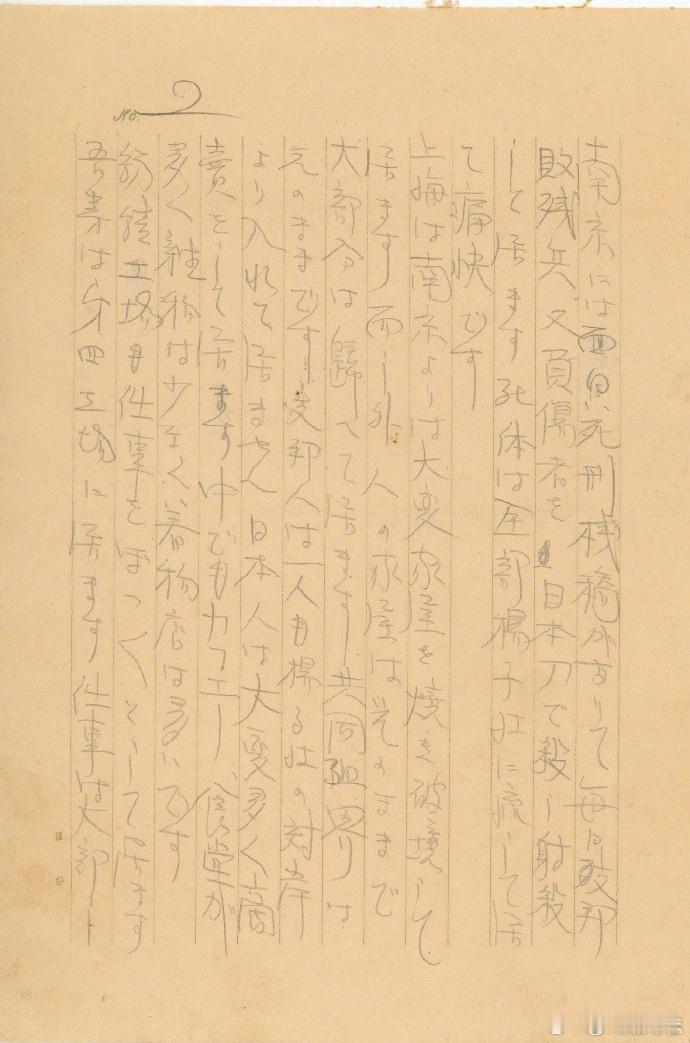 No. 2
南京には面白い死刑桟橋がありて毎日支那
敗残兵又負傷者を日本刀で殺し射殺
して居ます死体は全部揚子江に流して居
て痛快です
上海は南京よりは大変家屋を焼き破壊して
居ます而し外人の家屋は元のままで
大部分は歸へて居ます共同租界りは
元のままです支那人は一人も揚子江の対岸
より入れて居ません日本人は大変多く商
賣をして居ます中でもカフエー、食堂が
多く雑物は少なく着物店は多いです
紡績工場も仕事をぼつ〱として居ます
吾等は第四工場に居ます仕事は大部し